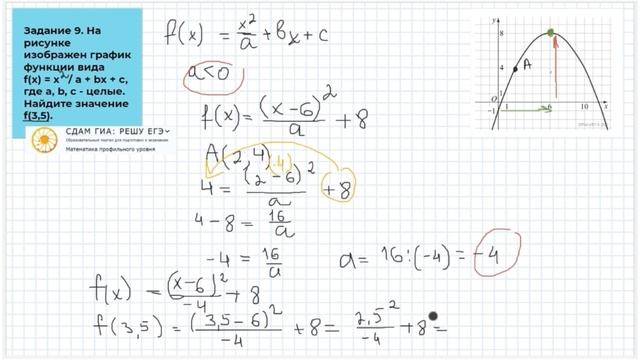 Задание 9. На
рисунке
изображен график
функции вида
f(x) = x² / a + bx + c,
где a, b, c - целые.
Найдите значение
f(3,5).
СДАМ ГИА: РЕШУ ЕГЭ
Образовательный портал для подготовки к экзаменам
Математика профильного уровня
f(x) = x²/a + bx + c
a<0
f(x) = (x-6)²/a + 8
A(2,4)
4 = (2-6)²/a + 8
(-4)
4 - 8 = 16/a
-4 = 16/a
a = 16:(-4) = -4
f(x) = (x-6)²/-4 + 8
f(3,5) = (3,5-6)²/-4 + 8 = 2,5²/-4 + 8 =
y
8
A
4
1
0
-1
1
6
10
x